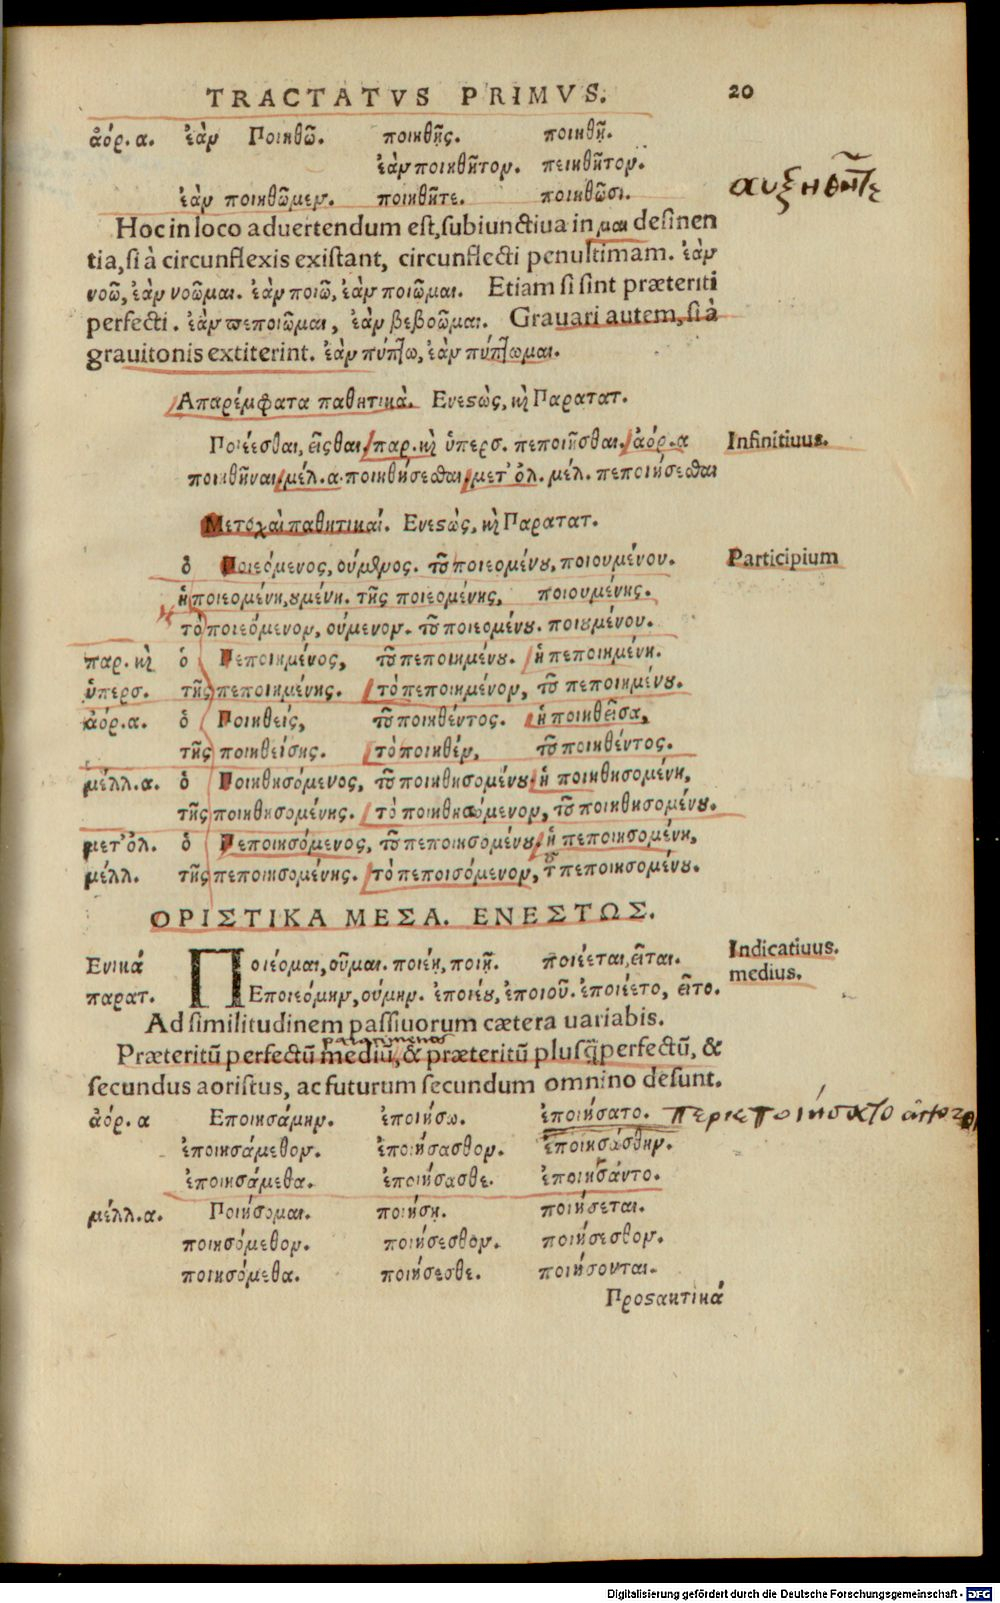 TRACTATVS PRIMVS. 20
ἀόρ. α. ἐὰν Ποιηθῶ. ποιηθῇς. ποιηθῇ.
ἐὰν ποιηθῆτον. πειηθῆτον.
αυξηθῆτε
ἐὰν ποιηθῶμεν. ποιηθῆτε. ποιηθῶσι.
Hoc in loco aduertendum est, subiunctiua in μαι desinen
tia, si à circunflexis existant, circunflecti penultimam. ἐὰν
νοῶ, ἐὰν νοῶμαι. ἐὰν ποιῶ, ἐὰν ποιῶμαι. Etiam si sint præteriti
perfecti. ἐὰν πεποιῶμαι, ἐὰν βεβοῶμαι. Grauari autem, si à
grauitonis extiterint. ἐὰν τύπτω, ἐὰν τύπτωμαι.
Απαρέμφατα παθητικὰ. Ενεστὼς, καὶ Παρατατ.
Ποιέεσθαι, εῖσθαι. παρ. καὶ ὑπερσ. πεποιῆσθαι. ἀόρ. α Infinitiuus.
ποιηθῆναι. μέλ. α. ποιηθήσεσθαι. μετ' ὀλ. μέλ. πεποιήσεσθαι
Μετοχαὶ παθητικαί. Ενεστὼς, καὶ Παρατατ.
ὁ Ποιεόμενος, ούμενος. τοῦ ποιεομένου, ποιουμένου. Participium
ἡ ποιεομένη, ουμένη. τῆς ποιεομένης, ποιουμένης.
τὸ ποιεόμενον, ούμενον. τοῦ ποιεομένου. ποιουμένου.
παρ. καὶ ὁ Πεποιημένος, τοῦ πεποιημένου. ἡ πεποιημένη.
ὑπερσ. τῆς πεποιημένης. τὸ πεποιημένον, τοῦ πεποιημένου.
ἀόρ. α. ὁ Ποιηθεὶς, τοῦ ποιηθέντος. ἡ ποιηθεῖσα,
τῆς ποιηθείσης. τὸ ποιηθέν, τοῦ ποιηθέντος.
μέλλ. α. ὁ Ποιηθησόμενος, τοῦ ποιηθησομένου. ἡ ποιηθησομένη,
τῆς ποιηθησομένης. τὸ ποιηθησόμενον, τοῦ ποιηθησομένου.
μετ' ὀλ. ὁ Πεποιησόμενος, τοῦ πεποιησομένου. ἡ πεποιησομένη,
μέλλ. τῆς πεποιησομένης. τὸ πεποισόμενον, τοῦ πεποιησομένου.
ΟΡΙΣΤΙΚΑ ΜΕΣΑ. ΕΝΕΣΤΩΣ.
Ενικά Ποιέομαι, οῦμαι. ποιέῃ, ποιῇ. ποιέεται, εῖται. Indicatiuus.
medius.
παρατ. Εποιεόμην, ούμην. ἐποιέου, ἐποιοῦ. ἐποιέετο, εῖτο.
Ad similitudinem passiuorum cætera uariabis.
Præteritū perfectū mediū, & præteritū plusq̃perfectū, &
secundus aoristus, ac futurum secundum omnino desunt.
ἀόρ. α Εποιησάμην. ἐποιήσω. ἐποιήσατο. περιεποιήσατο
ἐποιησάμεθον. ἐποιήσασθον. ἐποιησάσθην.
ἐποιησάμεθα. ἐποιήσασθε. ἐποιησάντο.
μέλλ. α. Ποιήσομαι. ποιήσῃ. ποιήσεται.
ποιησόμεθον. ποιήσεσθον. ποιήσεσθον.
ποιησόμεθα. ποιήσεσθε. ποιήσονται.
Προστακτικά
Digitalisierung gefördert durch die Deutsche Forschungsgemeinschaft - DFG